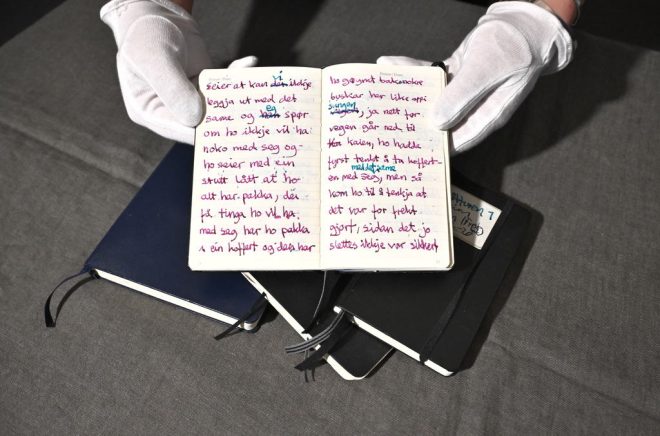 seier at kan vi ikkje
leggja ut med det
same og eg spør
om ho ikkje vil ha
noko med seg og
ho seier med ein
stutt lått at ho
alt har pakka, dei
få tinga ho vil ha
med seg har ho pakka
i ein koffert og den har
ho gøymt bak nokre
buskar her like oppi
svingen, ja rett før
vegen går ned til
kaien, ho hadde
fyrst tenkt å ta koffert-
med det same
en med seg, men så
kom ho til å tenkja at
det var for frekt
gjort, sidan det jo
slettes ikkje var sikkert